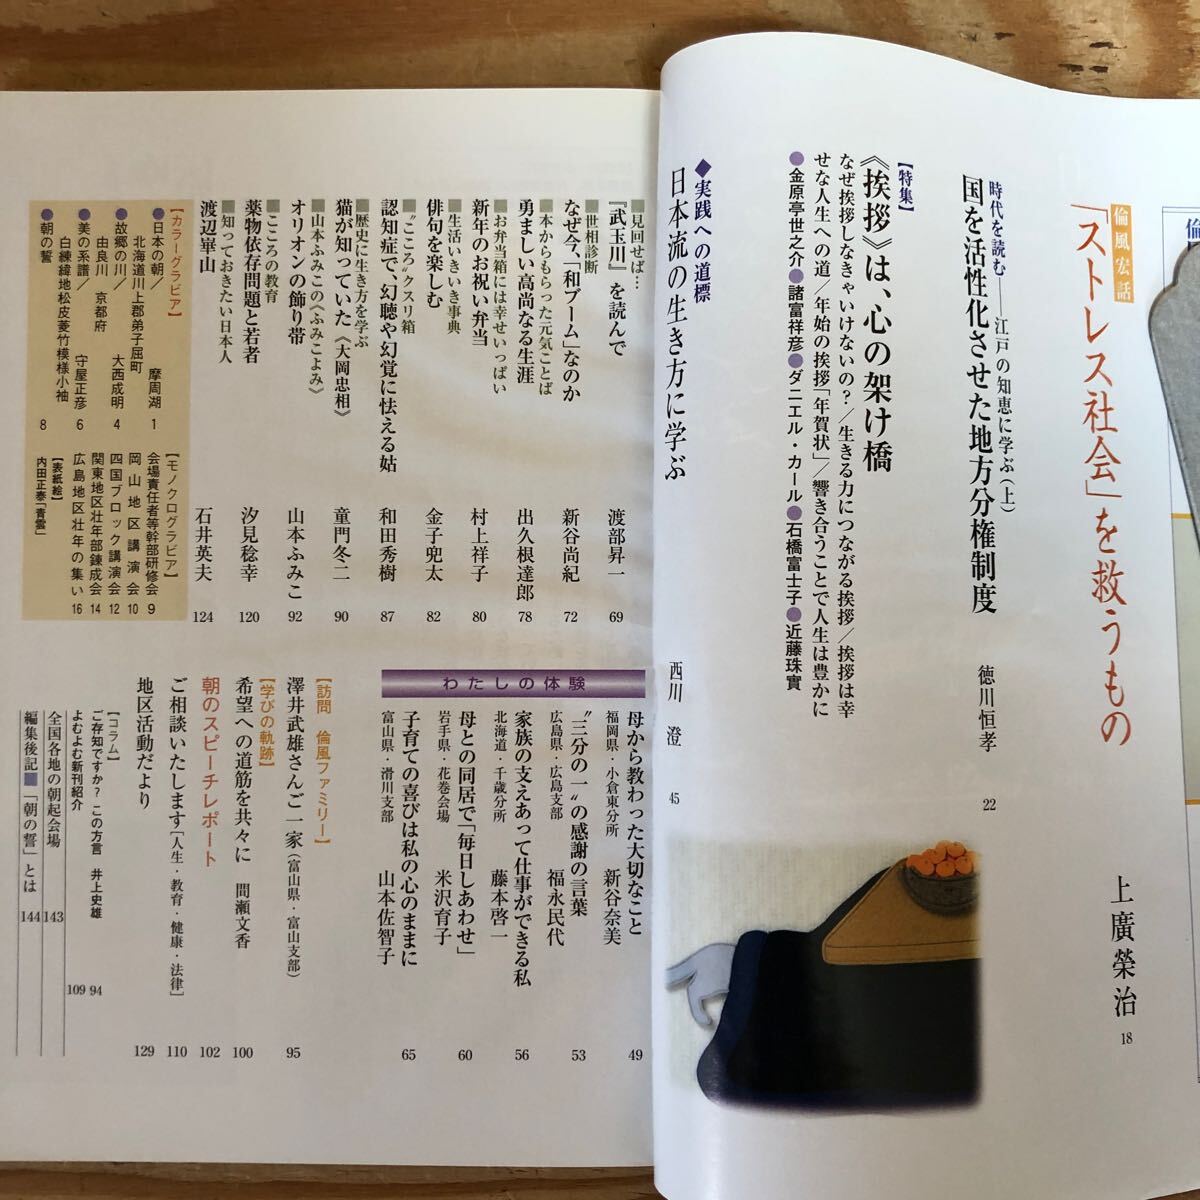 倫
倫風宏話
「ストレス社会」を救うもの
上廣榮治
18
時代を読む――江戸の知恵に学ぶ(上)
国を活性化させた地方分権制度
徳川恒孝
22
【特集】
《挨拶》は、心の架け橋
なぜ挨拶しなきゃいけないの?/生きる力につながる挨拶/挨拶は幸
せな人生への道/年始の挨拶「年賀状」/響き合うことで人生は豊かに
●金原亭世之介●諸富祥彦●ダニエル・カール●石橋富士子●近藤珠實
◆実践への道標
日本流の生き方に学ぶ
西川 澄
45
■見回せば…
『武玉川』を読んで
渡部昇一
69
■世相診断
なぜ今、「和ブーム」なのか
新谷尚紀
72
■本からもらった元気ことば
勇ましい高尚なる生涯
出久根達郎
78
■お弁当箱には幸せいっぱい
新年のお祝い弁当
村上祥子
80
■生活いきいき事典
俳句を楽しむ
金子兜太
82
■“こころ”クスリ箱
認知症で、幻聴や幻覚に怯える姑
和田秀樹
87
■歴史に生き方を学ぶ
猫が知っていた《大岡忠相》
童門冬二
90
■山本ふみこの〈ふみこよみ〉
オリオンの飾り帯
山本ふみこ
92
■こころの教育
薬物依存問題と若者
汐見稔幸
120
■知っておきたい日本人
渡辺崋山
石井英夫
124
【カラーグラビア】
●日本の朝/
北海道川上郡弟子屈町 摩周湖 1
●故郷の川/
由良川 京都府 大西成明 4
●美の系譜/ 守屋正彦 6
白練緯地松皮菱竹模様小袖
●朝の誓 8
【モノクログラビア】
会場責任者等幹部研修会 9
岡山地区講演会 10
四国ブロック講演会 12
関東地区壮年部錬成会 14
広島地区壮年の集い 16
【表紙絵】
内田正泰「青雲」
わたしの体験
母から教わった大切なこと
福岡県・小倉東分所 新谷奈美
49
“三分の一”の感謝の言葉
広島県・広島支部 福永民代
53
家族の支えあって仕事ができる私
北海道・千歳分所 藤本啓一
56
母との同居で「毎日しあわせ」
岩手県・花巻会場 米沢育子
60
子育ての喜びは私の心のままに
富山県・滑川支部 山本佐智子
65
【訪問 倫風ファミリー】
澤井武雄さんご一家(富山県・富山支部)
95
【学びの軌跡】
希望への道筋を共々に 間瀬文香
100
朝のスピーチレポート
102
ご相談いたします[人生・教育・健康・法律]
110
地区活動だより
129
【コラム】
ご存知ですか?この方言 井上史雄
94
よむよむ新刊紹介
109
全国各地の朝起会場
143
編集後記■「朝の誓」とは
144